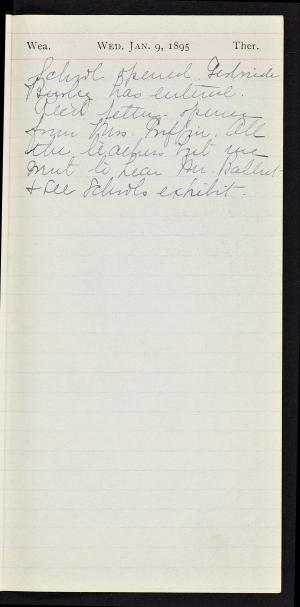 Wea. WED. JAN. 9, 1895 Ther.
School opened. Gertrude
has entered.
Rec'd letter
from Mrs. Griffin. All
the teachers but me
went to hear Mr. Balliet
& see Schools exhibit.